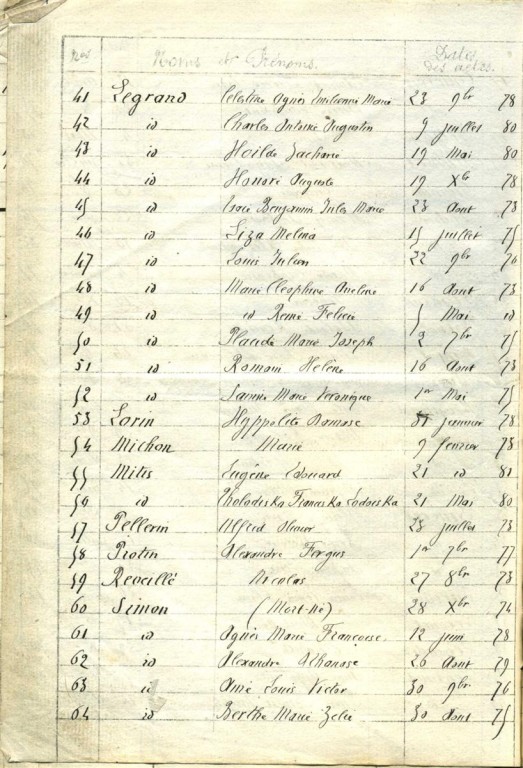 Nos Noms et Prénoms. Dates des actes.
41 Legrand Célestine Agnès Emilienne Marie 23 9br 78
42 id Charles Antoine Augustin 9 juillet 80
43 id Hoïlde Zacharie 19 Mai 80
44 id Honoré Auguste 19 Xbr 78
45 id Benjamin Jules Marie 23 Aout 73
46 id Liza Melina 15 juillet 75
47 id Louis Julien 22 9br 76
48 id Marie Cléophine 16 Aout 73
49 id id René Félicie 5 Mai id
50 id Placide Marie Joseph 2 7br 75
51 id Romain Helène 16 Aout 73
52 id Marie Véronique 1er Mai 75
53 Lorin Hyppolite Damase janvier 78
54 Michon Marie 9 fevrier 78
55 Mitis Eugène Edouard 21 id 81
56 id Franciska Lodoiska 21 Mai 80
57 Pellerin Alfred 28 juillet 73
58 Piotin Alexandre Fergus 1er 7br 77
59 Reveillé Nicolas 27 8br 73
60 Simon (Mort-né) 28 Xbr 74
61 id Agnès Marie Françoise 12 juin 78
62 id Alexandre Athanase 26 Aout 79
63 id Aimé Louis Victor 30 9br 76
64 id Berthe Marie Zelie 30 Aout 75